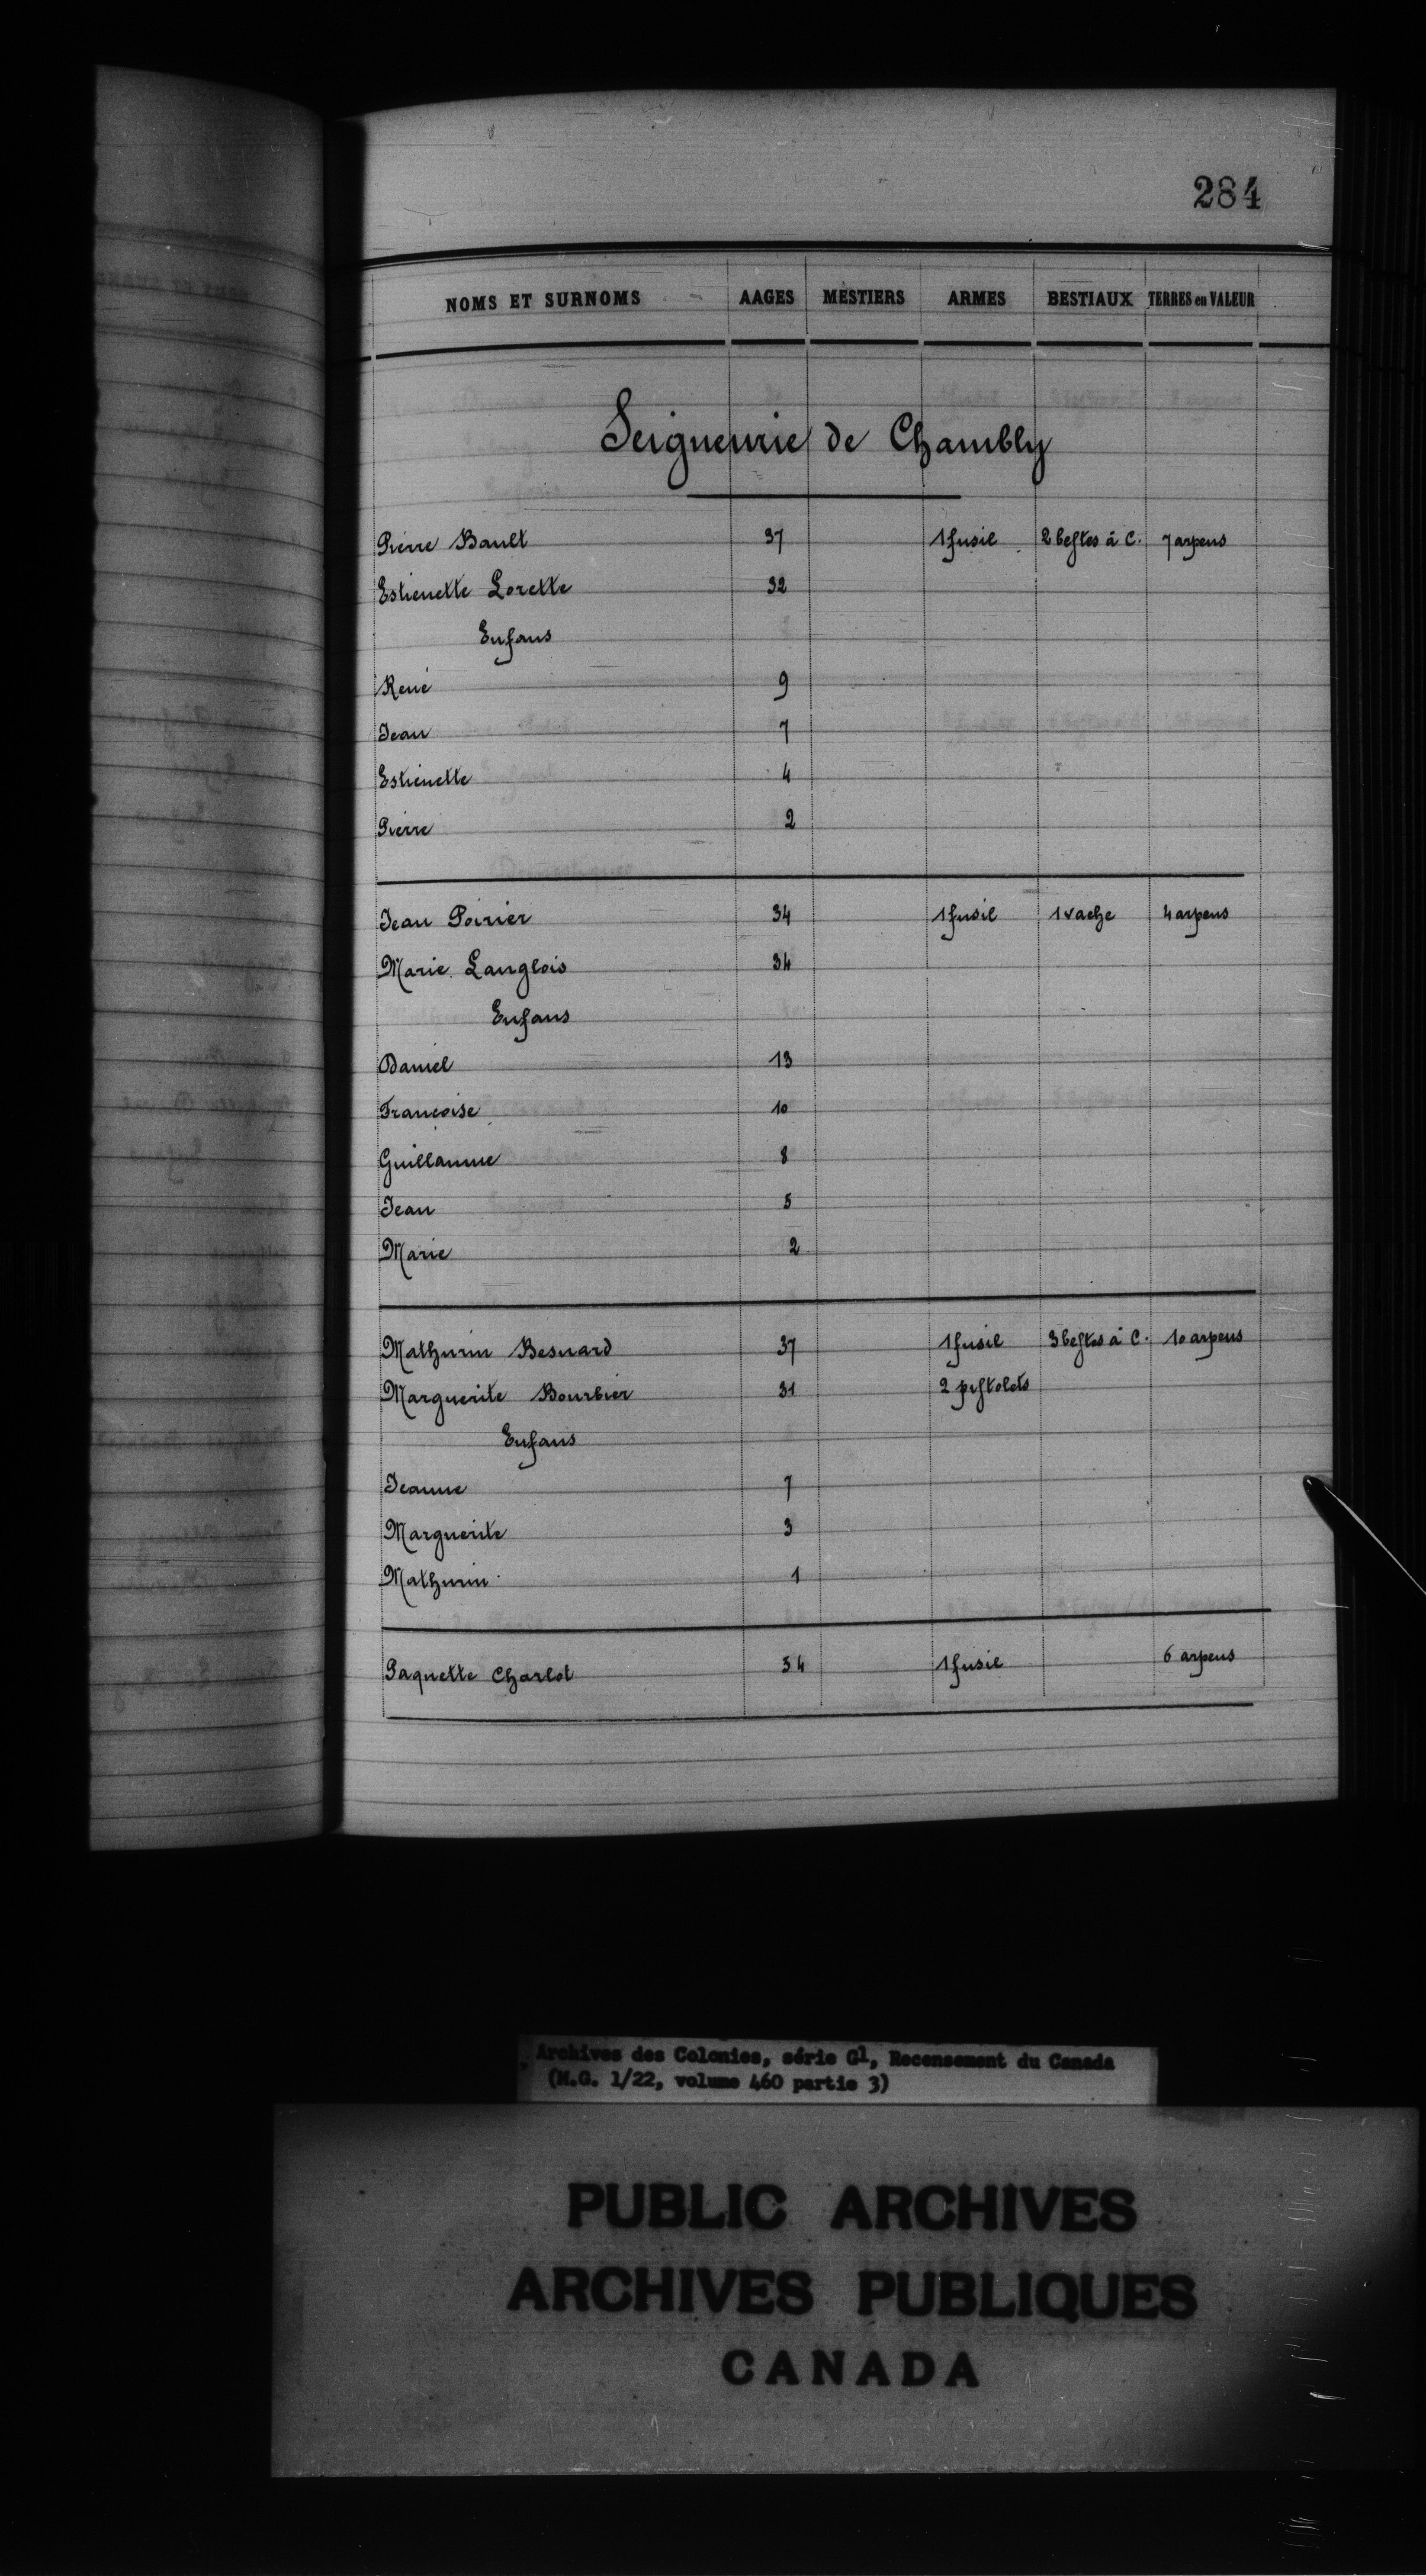 284
NOMS ET SURNOMS AAGES MÉSTIERS ARMES BESTIAUX TERRES en VALEUR
Seigneurie de Chambly
Pierre Bault 37 1 fusil 2 bestes à C. 7 arpens
Estienette Lorette 32
Enfans
René 9
Jean 7
Estienette 4
Pierre 2
Jean Poirier 34 1 fusil 1 vache 4 arpens
Marie Langlois 34
Enfans
Daniel 13
Françoise 10
Guillaume 8
Jean 5
Marie 2
Mathurin Besnard 37 1 fusil 3 bestes à C. 10 arpens
Marguerite Bourbier 31 2 pistolets
Enfans
Jeanne 7
Marguerite 3
Mathurin 1
Paquette Charlot 34 1 fusil 6 arpens
Archives des Colonies, série G1, Recensement du Canada
(M.G. 1/22, volume 460 partie 3)
PUBLIC ARCHIVES
ARCHIVES PUBLIQUES
CANADA